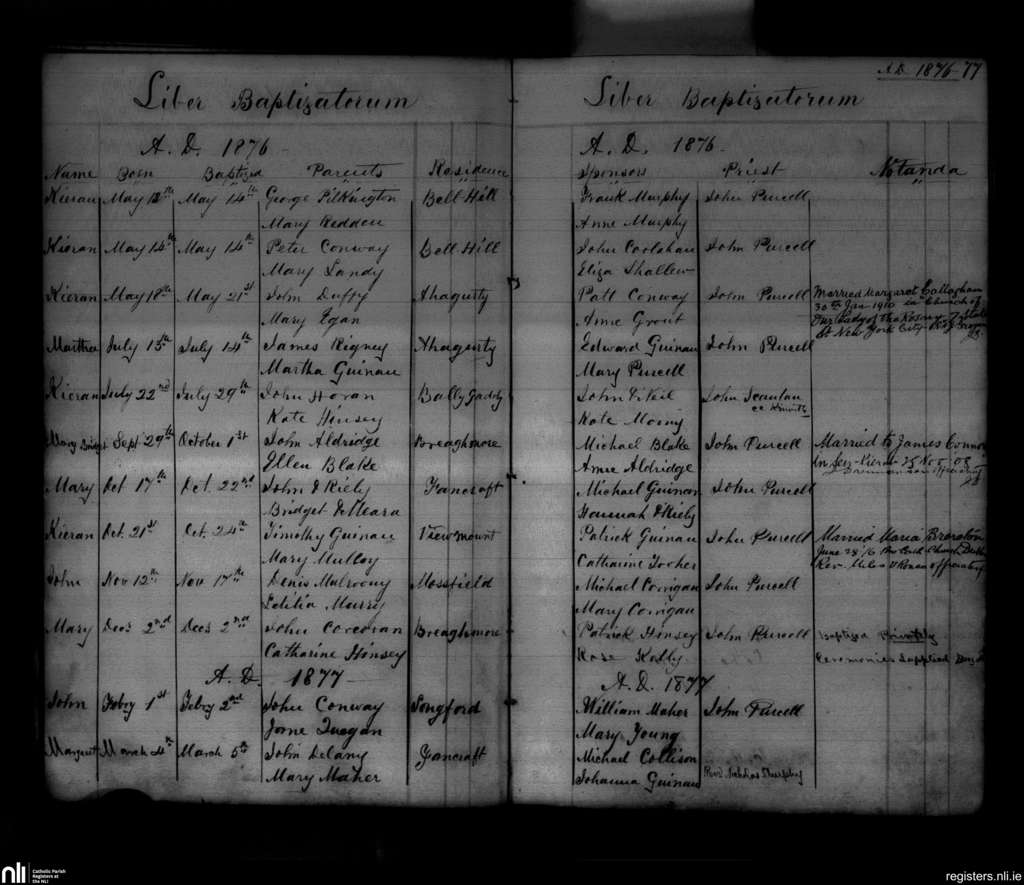 A.D. 1876-77
Liber Baptizatorum Liber Baptizatorum
A. D. 1876 A. D. 1876
Name Born Baptized Parents Residence Sponsors Priest Notanda
Kieran May 12th May 14th George Pilkington Bell Hill Frank Murphy John Purcell
Mary Redden Anne Murphy
Kieran May 14th May 14th Peter Conway Bell Hill John Coolahan John Purcell
Mary Landy Eliza Shallew
Kieran May 18th May 21st John Duffy Ahagurty Patt Conway John Purcell Married Margaret Callaghan
30th Jan 1910 in Church of
Mary Egan Anne Grout Our Lady of the Rosary 7 State
St New York City
Matthew July 13th July 14th James Rigney Ahagurty Edward Guinan John Purcell
Martha Guinan Mary Purcell
Kieran July 22nd July 29th John Horan Ballygaddy John O'Neil John Scanlan
Kate Hinsey Kate Morny cc Kinnitty
Mary Bridget Sept 29th October 1st John Aldridge Breaghmore Michael Blake John Purcell Married to James Connor
Ellen Blake Anne Aldridge in Seir-Kieran 25 Nov 08
Mary Oct 17th Oct. 22nd John O'Kiely Fancroft Michael Guinan John Purcell
Bridget O'Meara Hannah O'Kiely
Kieran Oct. 21st Oct. 24th Timothy Guinan Viewmount Patrick Guinan John Purcell Married Maria Brereton
Mary Mulloy Catharine Tooher June 28 '16 Church
Rev.
John Nov 12th Nov 17th Denis Mulroony Mossfield Michael Corrigan John Purcell
Letitia Murry Mary Corrigan
Mary Decr 2nd Decr 2nd John Corcoran Breaghmore Patrick Hinsey John Purcell Baptized Privately
Catharine Hinsey Rose Kelly Ceremonies Supplied
A. D. 1877 A. D. 1877
John Febry 1st Febry 2nd John Conway Longford William Maher John Purcell
Jane Deegan Mary Young
Margaret March 4th March 5th John Delany Fancroft Michael Collison Revd Nicholas Murphy
Mary Maher Johanna Guinan
nli Catholic Parish
Registers at
the NLI
registers.nli.ie